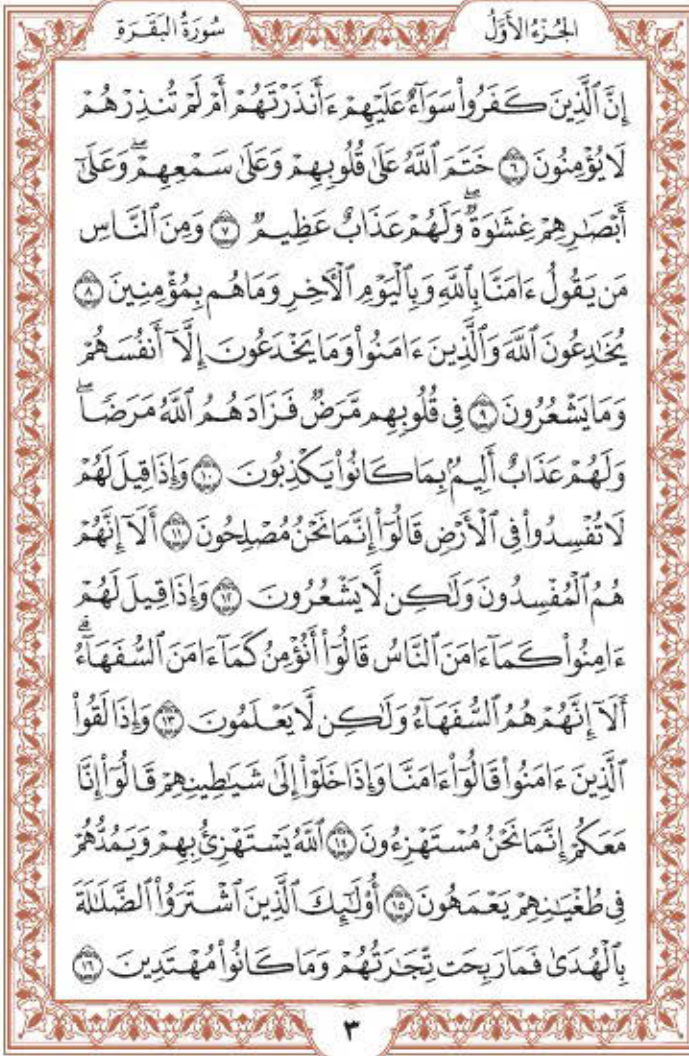 سُورَةُ البَقَرَةِ
الجُزْءُ الأَوَّلُ
إِنَّ ٱلَّذِينَ كَفَرُوا۟ سَوَآءٌ عَلَيْهِمْ ءَأَنذَرْتَهُمْ أَمْ لَمْ تُنذِرْهُمْ
لَا يُؤْمِنُونَ ٦ خَتَمَ ٱللَّهُ عَلَىٰ قُلُوبِهِمْ وَعَلَىٰ سَمْعِهِمْ ۖ وَعَلَىٰٓ
أَبْصَـٰرِهِمْ غِشَـٰوَةٌ ۖ وَلَهُمْ عَذَابٌ عَظِيمٌ ٧ وَمِنَ ٱلنَّاسِ
مَن يَقُولُ ءَامَنَّا بِٱللَّهِ وَبِٱلْيَوْمِ ٱلْـَٔاخِرِ وَمَا هُم بِمُؤْمِنِينَ ٨
يُخَـٰدِعُونَ ٱللَّهَ وَٱلَّذِينَ ءَامَنُوا۟ وَمَا يَخْدَعُونَ إِلَّآ أَنفُسَهُمْ
وَمَا يَشْعُرُونَ ٩ فِى قُلُوبِهِم مَّرَضٌ فَزَادَهُمُ ٱللَّهُ مَرَضًا ۖ
وَلَهُمْ عَذَابٌ أَلِيمٌۢ بِمَا كَانُوا۟ يَكْذِبُونَ ١٠ وَإِذَا قِيلَ لَهُمْ
لَا تُفْسِدُوا۟ فِى ٱلْأَرْضِ قَالُوٓا۟ إِنَّمَا نَحْنُ مُصْلِحُونَ ١١ أَلَآ إِنَّهُمْ
هُمُ ٱلْمُفْسِدُونَ وَلَـٰكِن لَّا يَشْعُرُونَ ١٢ وَإِذَا قِيلَ لَهُمْ
ءَامِنُوا۟ كَمَآ ءَامَنَ ٱلنَّاسُ قَالُوٓا۟ أَنُؤْمِنُ كَمَآ ءَامَنَ ٱلسُّفَهَآءُ ۗ
أَلَآ إِنَّهُمْ هُمُ ٱلسُّفَهَآءُ وَلَـٰكِن لَّا يَعْلَمُونَ ١٣ وَإِذَا لَقُوا۟
ٱلَّذِينَ ءَامَنُوا۟ قَالُوٓا۟ ءَامَنَّا وَإِذَا خَلَوْا۟ إِلَىٰ شَيَـٰطِينِهِمْ قَالُوٓا۟ إِنَّا
مَعَكُمْ إِنَّمَا نَحْنُ مُسْتَهْزِءُونَ ١٤ ٱللَّهُ يَسْتَهْزِئُ بِهِمْ وَيَمُدُّهُمْ
فِى طُغْيَـٰنِهِمْ يَعْمَهُونَ ١٥ أُو۟لَـٰٓئِكَ ٱلَّذِينَ ٱشْتَرَوُا۟ ٱلضَّلَـٰلَةَ
بِٱلْهُدَىٰ فَمَا رَبِحَت تِّجَـٰرَتُهُمْ وَمَا كَانُوا۟ مُهْتَدِينَ ١٦
٣